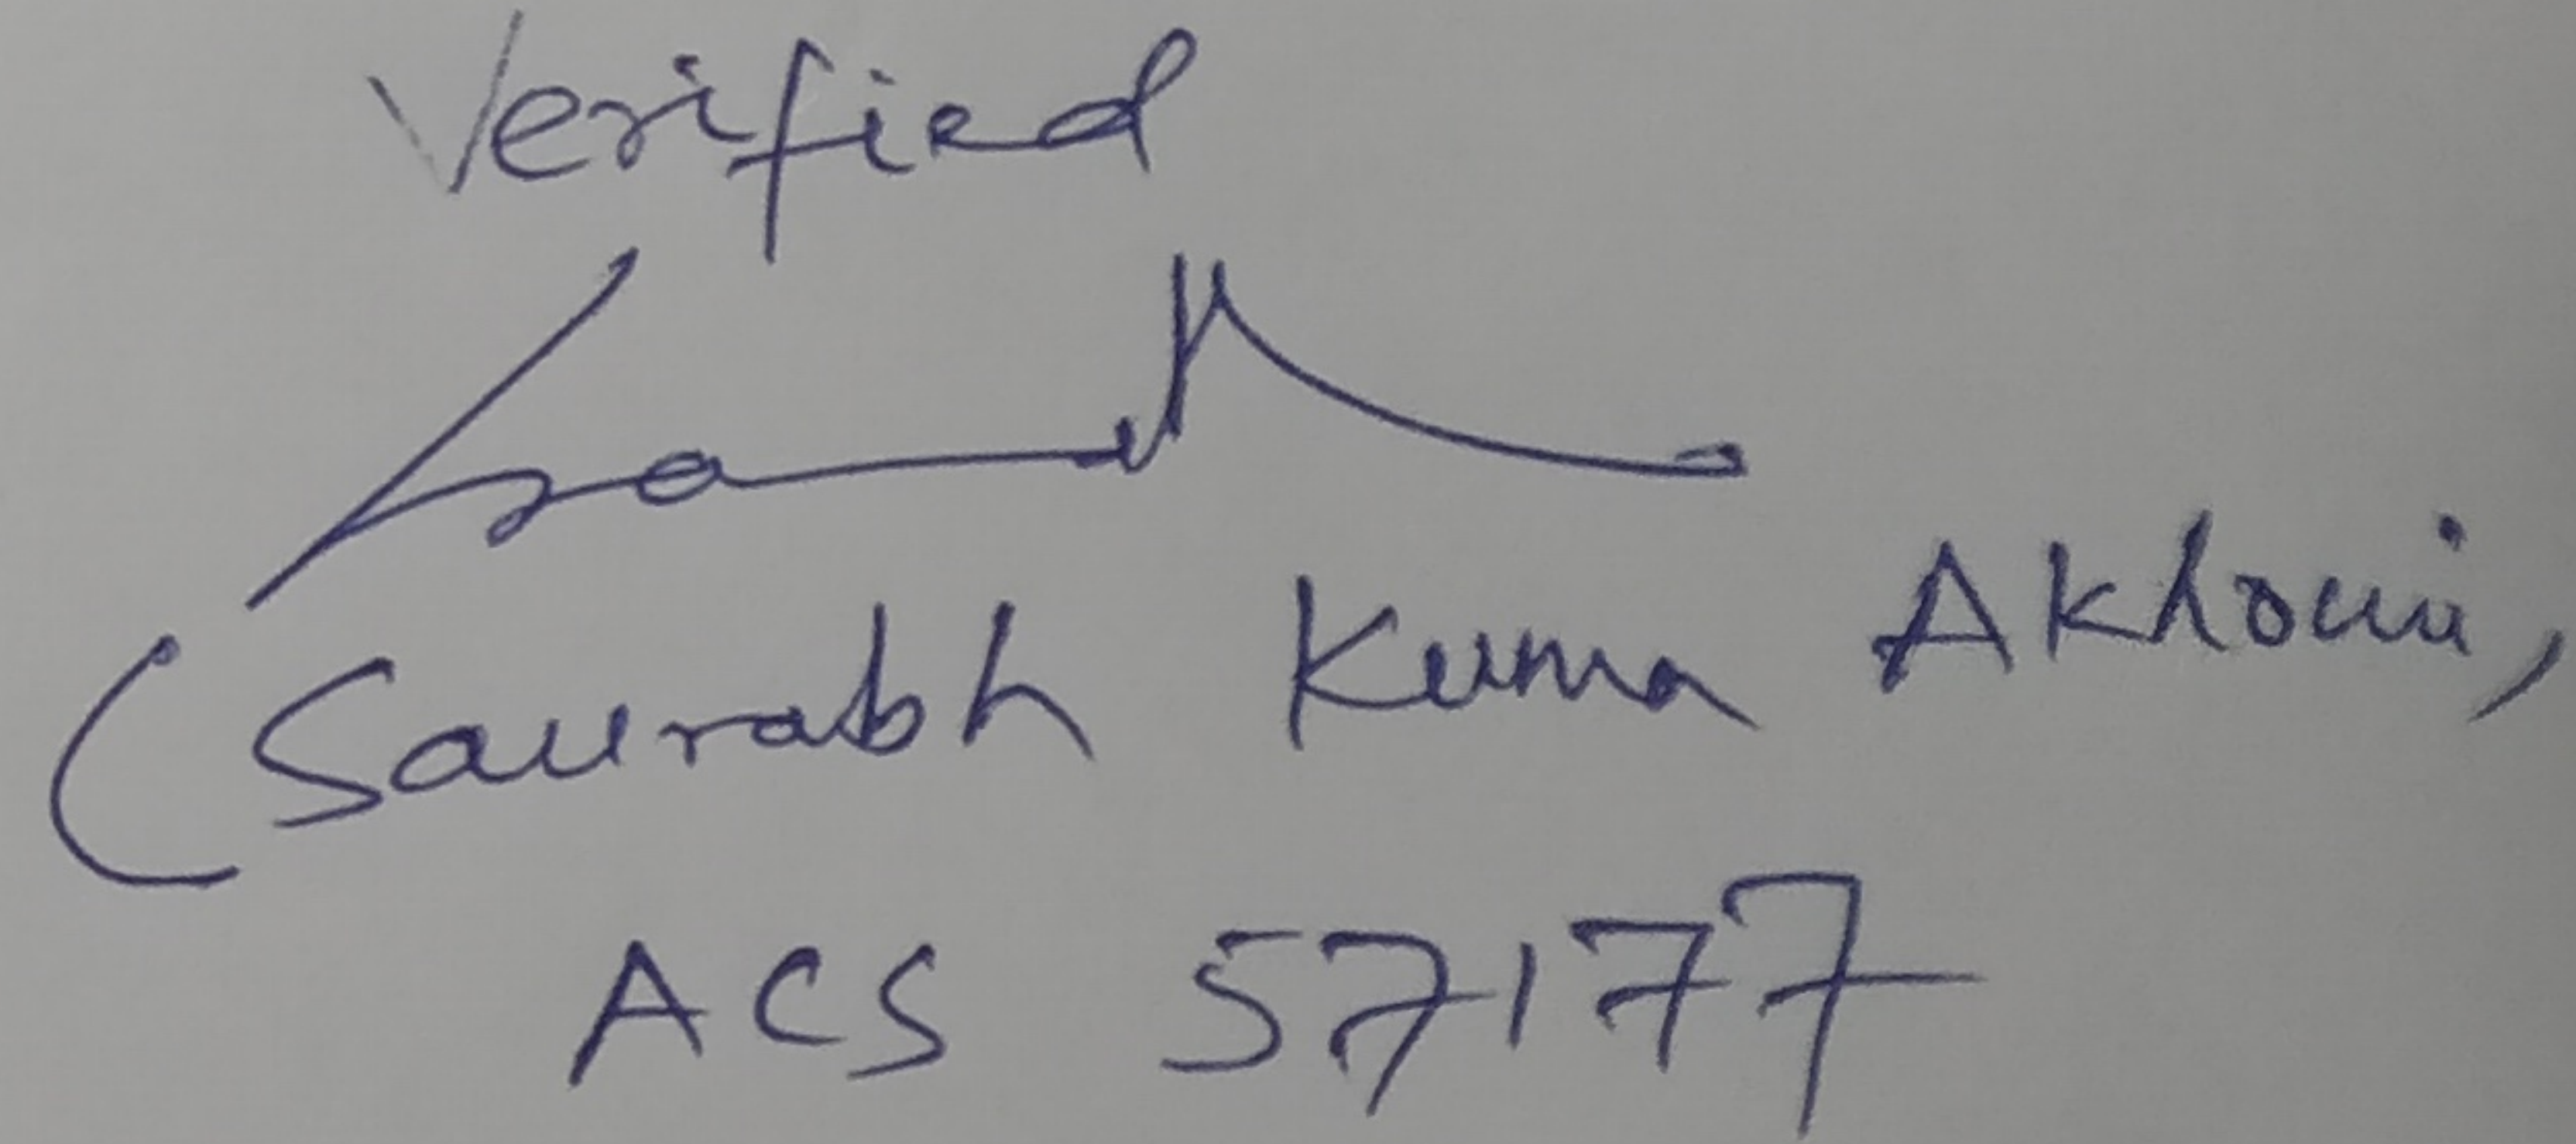 Verified
(Saurabh Kumar Akhouri,
ACS 57177